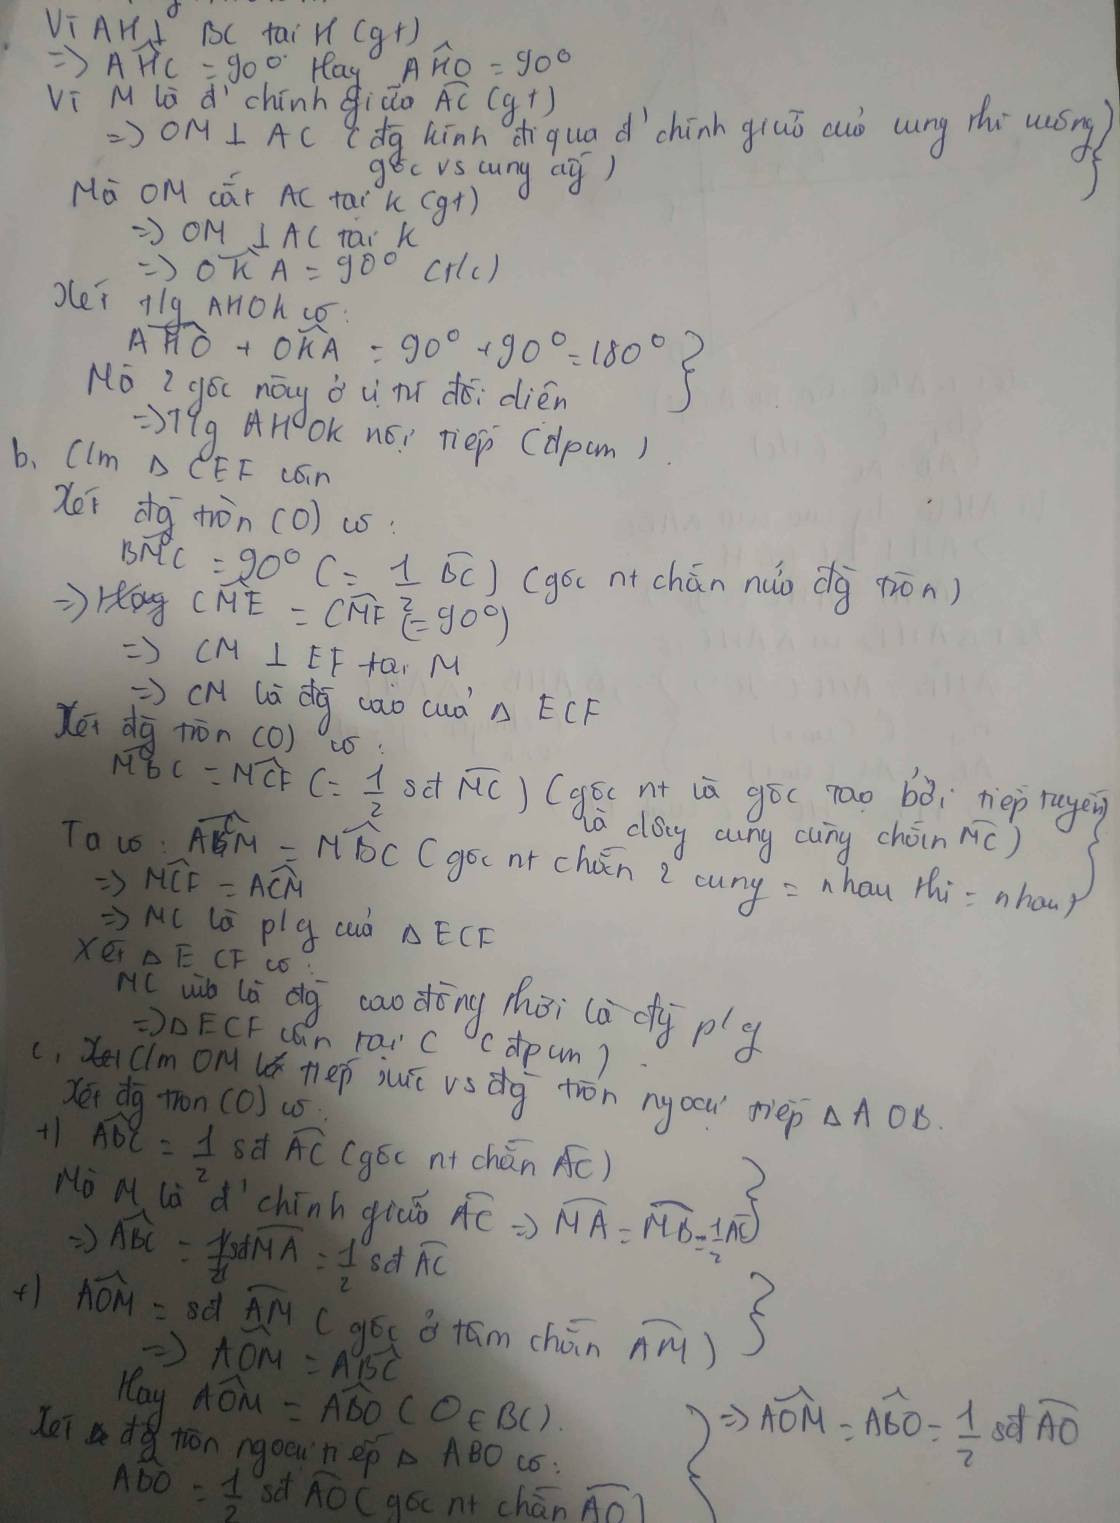 Vì AH ⊥ BC tại H (gt)
=> AĤC = 90° Hay AĤO = 90°
Vì M là đ' chính giữa AC (gt)
=> OM ⊥ AC (đg kính đi qua đ' chính giữa của cung thì vuông
góc vs cung ấy)
Mà OM cắt AC tại K (gt)
=> OM ⊥ AC tại K
=> OK̂A = 90° (t/c)
Xét t/g AHOK có:
AĤO + OK̂A = 90° + 90° = 180°
Mà 2 góc này ở vị trí đối diện
=> T/g AHOK nội tiếp (đpcm).
b, C/m △ CEF cân
Xét đg tròn (O) có:
BM̂C = 90° (= 1/2 BC) (góc nt chắn nửa đg tròn)
=> Hay CM̂E = CM̂F (= 90°)
=> CM ⊥ EF tại M
=> CM là đg cao của △ ECF
Xét đg tròn (O) có:
MB̂C = MĈF (= 1/2 sđ MC) (góc nt và góc tạo bởi tiếp tuyến
và dây cung cùng chắn MC)
Ta có: AĈM = MB̂C (góc nt chắn 2 cung = nhau thì = nhau)
=> MĈF = AĈM
=> MC là p/g của △ ECF
Xét △ ECF có:
MC vừa là đg cao đồng thời là đg p/g
=> △ ECF cân tại C (đpcm).
c, C/m OM tiếp xúc vs đg tròn ngoại tiếp △ AOB.
Xét đg tròn (O) có:
+) AB̂C = 1/2 sđ AC (góc nt chắn AC)
Mà M là đ' chính giữa AC => MA = MB = 1/2 AC
=> AB̂C = sđ MA = 1/2 sđ AC
+) AÔM = sđ AM (góc ở tâm chắn AM)
=> AÔM = AB̂C
Hay AÔM = AB̂O (O ∈ BC).
=> AÔM = AB̂O = 1/2 sđ AO
Xét đg tròn ngoại tiếp △ ABO có:
AB̂O = 1/2 sđ AO (góc nt chắn AO)